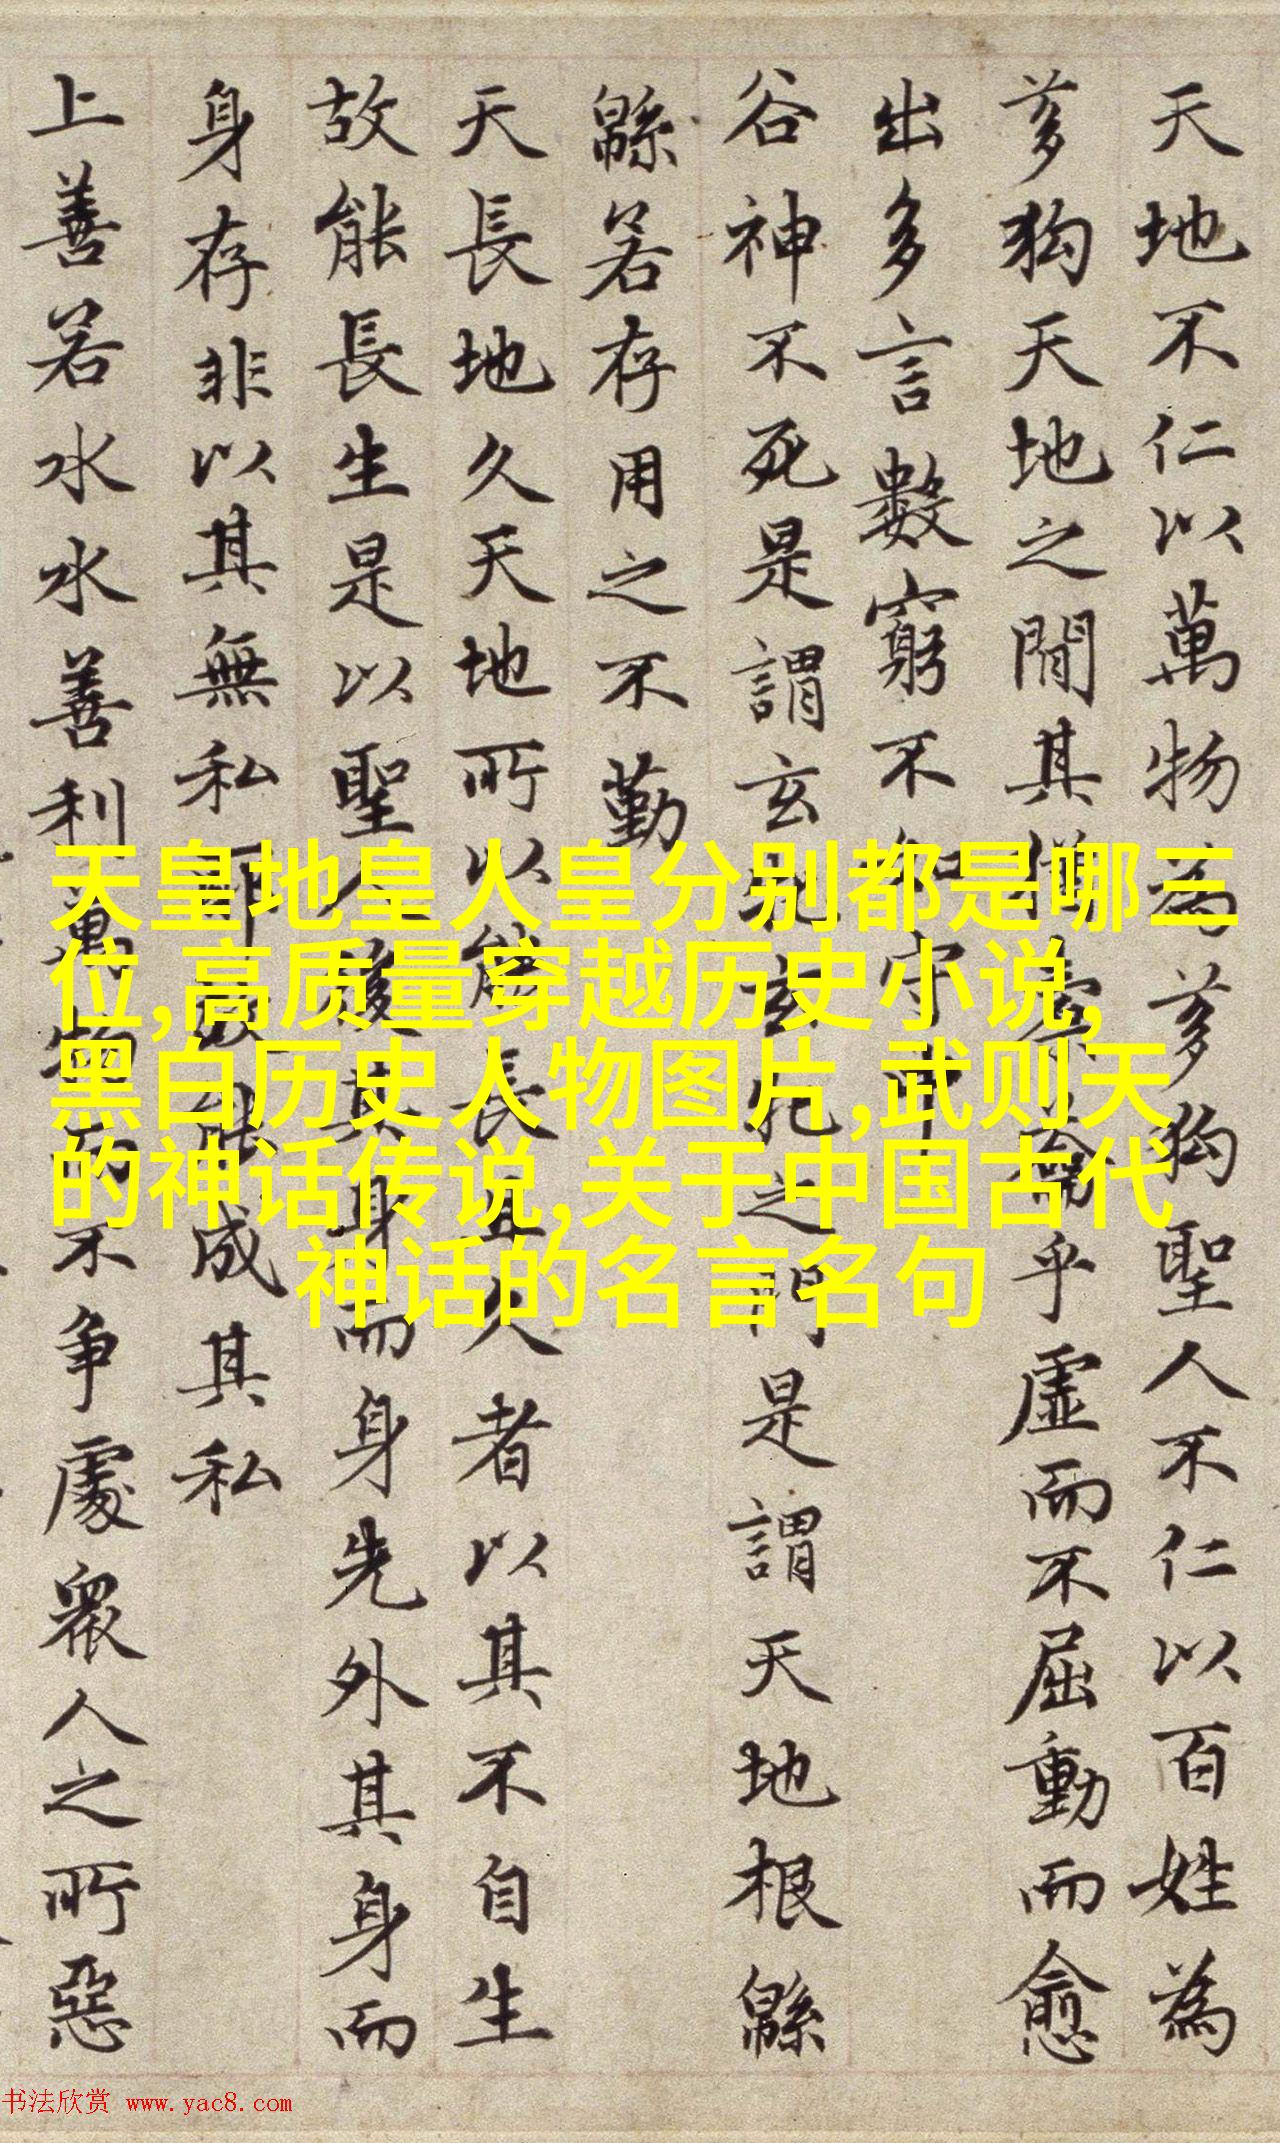 天地不仁以萬物為芻狗聖人不仁以百姓為
芻狗天地之間其猶橐籥乎虛而不屈動而愈
出多言數窮不如守中
谷神不死是謂玄牝玄牝之門是謂天地根緜
緜若存用之不勤
天長地久天地所以能長且久者以其不自生
故能長生是以聖人後其身而身先外其身而
身存非以其無私耶故能成其私
上善若水水善利萬物而不争處衆人之所惡
天皇地皇人皇分别都是哪三
位,高质量穿越历史小说,
黑白历史人物图片,武则天
的神话传说,关于中国古代
神话的名言名句
书法欣赏 www.yac8.com